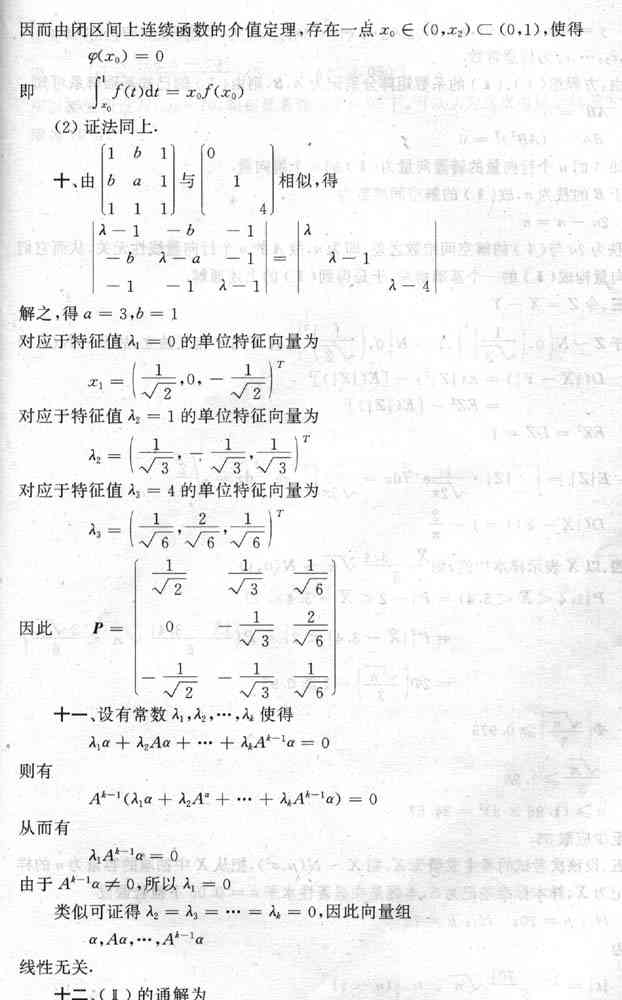 因而由闭区间上连续函数的介值定理,存在一点 x₀ ∈ (0,x₂) ⊂ (0,1),使得
φ(x₀) = 0
即 ∫_{x₀}^{1} f(t)dt = x₀f(x₀)
(2) 证法同上.
十、由 [1 b 1; b a 1; 1 1 1] 与 [0; 1; 4] 相似,得
|λ−1 −b −1; −b λ−a −1; −1 −1 λ−1| = |λ; λ−1; λ−4|
解之,得 a = 3,b = 1
对应于特征值 λ₁ = 0 的单位特征向量为
x₁ = (1/√2, 0, −1/√2)ᵀ
对应于特征值 λ₂ = 1 的单位特征向量为
λ₂ = (1/√3, −1/√3, 1/√3)ᵀ
对应于特征值 λ₃ = 4 的单位特征向量为
λ₃ = (1/√6, 2/√6, 1/√6)ᵀ
因此 P = [1/√2 1/√3 1/√6; 0 −1/√3 2/√6; −1/√2 −1/√3 1/√6]
十一、设有常数 λ₁,λ₂,⋯,λₖ 使得
λ₁α + λ₂Aα + ⋯ + λₖAᵏ⁻¹α = 0
则有
Aᵏ⁻¹(λ₁α + λ₂Aᵅ + ⋯ + λₖAᵏ⁻¹α) = 0
从而有
λ₁Aᵏ⁻¹α = 0
由于 Aᵏ⁻¹α ≠ 0,所以 λ₁ = 0
类似可证得 λ₂ = λ₃ = ⋯ = λₖ = 0,因此向量组
α,Aα,⋯,Aᵏ⁻¹α
线性无关.
十二、(Ⅱ) 的通解为